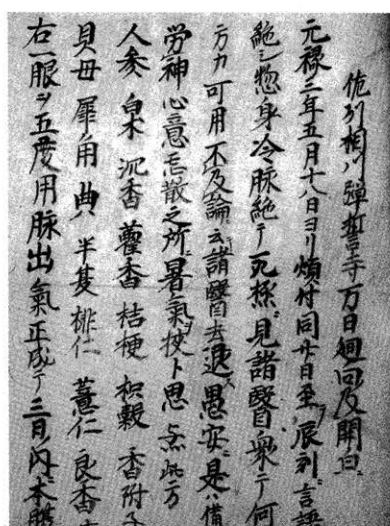 佐列相ハ弾誓寺万日廻向及開白ニ
元禄三年五月十八日ヨリ煩付同廿日至テ辰刻言語
絶シ惣身冷脉絶テ死様ニ見諸醫衆テ何
方カ可用不及論ニ云諸醫去退ス愚安ニ是ハ備
労神心意忘散之所ニ暑氣ヲ挟ト思点此方
人参 白朮 沉香 藿香 桔梗 枳殻 香附子
貝母 犀角 曲ハ 半夏 桃仁 薏仁 良香
右一服ヲ五度用脉出氣正成テ三日ノ内ニ本腹